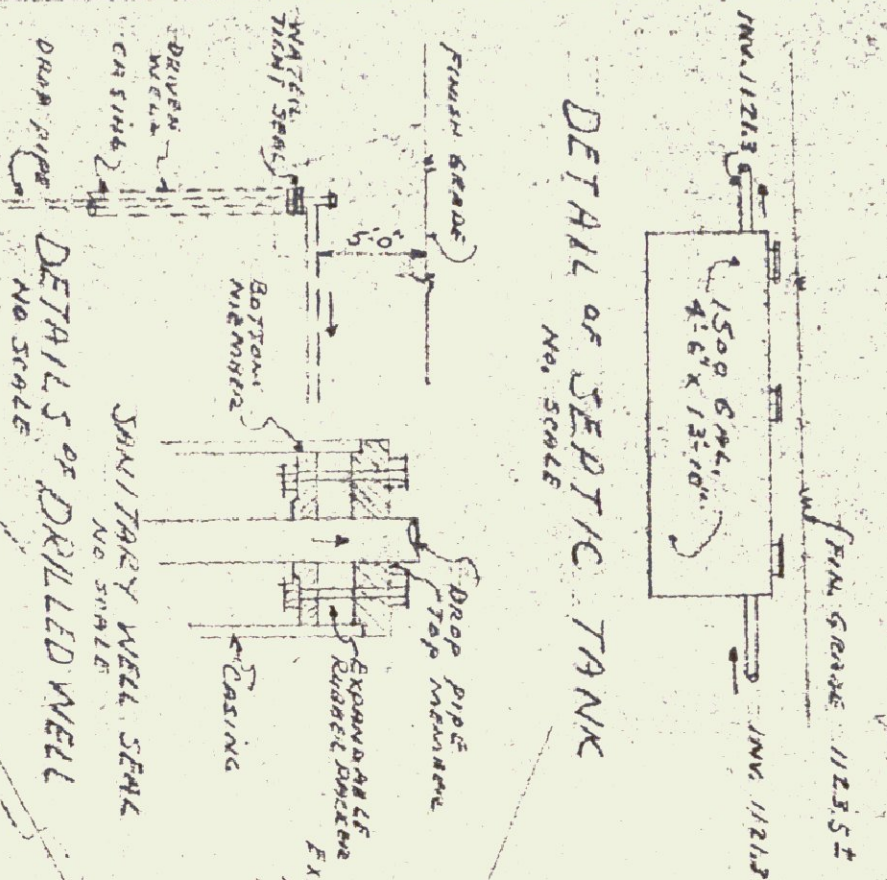 FIN. GRADE 1123.5±
INV. 1121.3
INV. 1121.8
1500 GAL.
4'-6" x 13'-10"
DETAIL OF SEPTIC TANK
NO. SCALE
FINISH GRADE
5'-0"
WATER
TIGHT SEAL
DRIVEN
WELL
CASING
DROP PIPE
BOTTOM
MEMBER
DROP PIPE
TOP MEMBER
EXPANDABLE
RUBBER PACKER
CASING
EX
SANITARY WELL SEAL
NO SCALE
DETAILS OF DRILLED WELL
NO SCALE